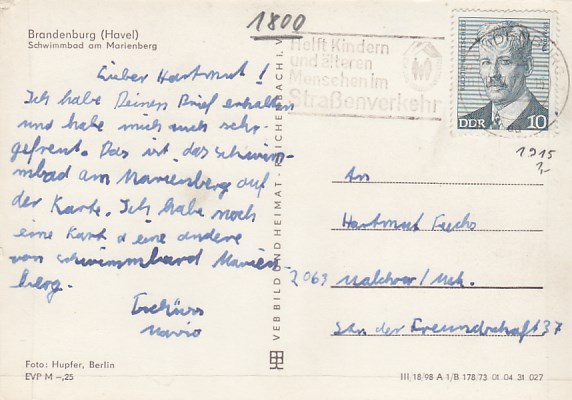 Brandenburg (Havel)
Schwimmbad am Marienberg
1800
Helft Kindern
und älteren
Menschen im
Straßenverkehr
DDR 10
1915
Lieber Hartmut!
Ich habe Deinen Brief erhalten
und habe mich auch sehr
gefreut. Das ist das schwim-
mbad am Marienberg auf
der Karte. Ich habe noch
eine Kart eine andere
von schwimmbard Marien-
berg.
Tschüss
Mario
An
Hartmut
2063 Malchow/Meck.
Str der Freundschaft 37
VEB BILD UND HEIMAT REICHENBACH I. V.
Foto: Hupfer, Berlin
EVP M –,25
III/18/98 A 1/B 178/73 01 04 31 027